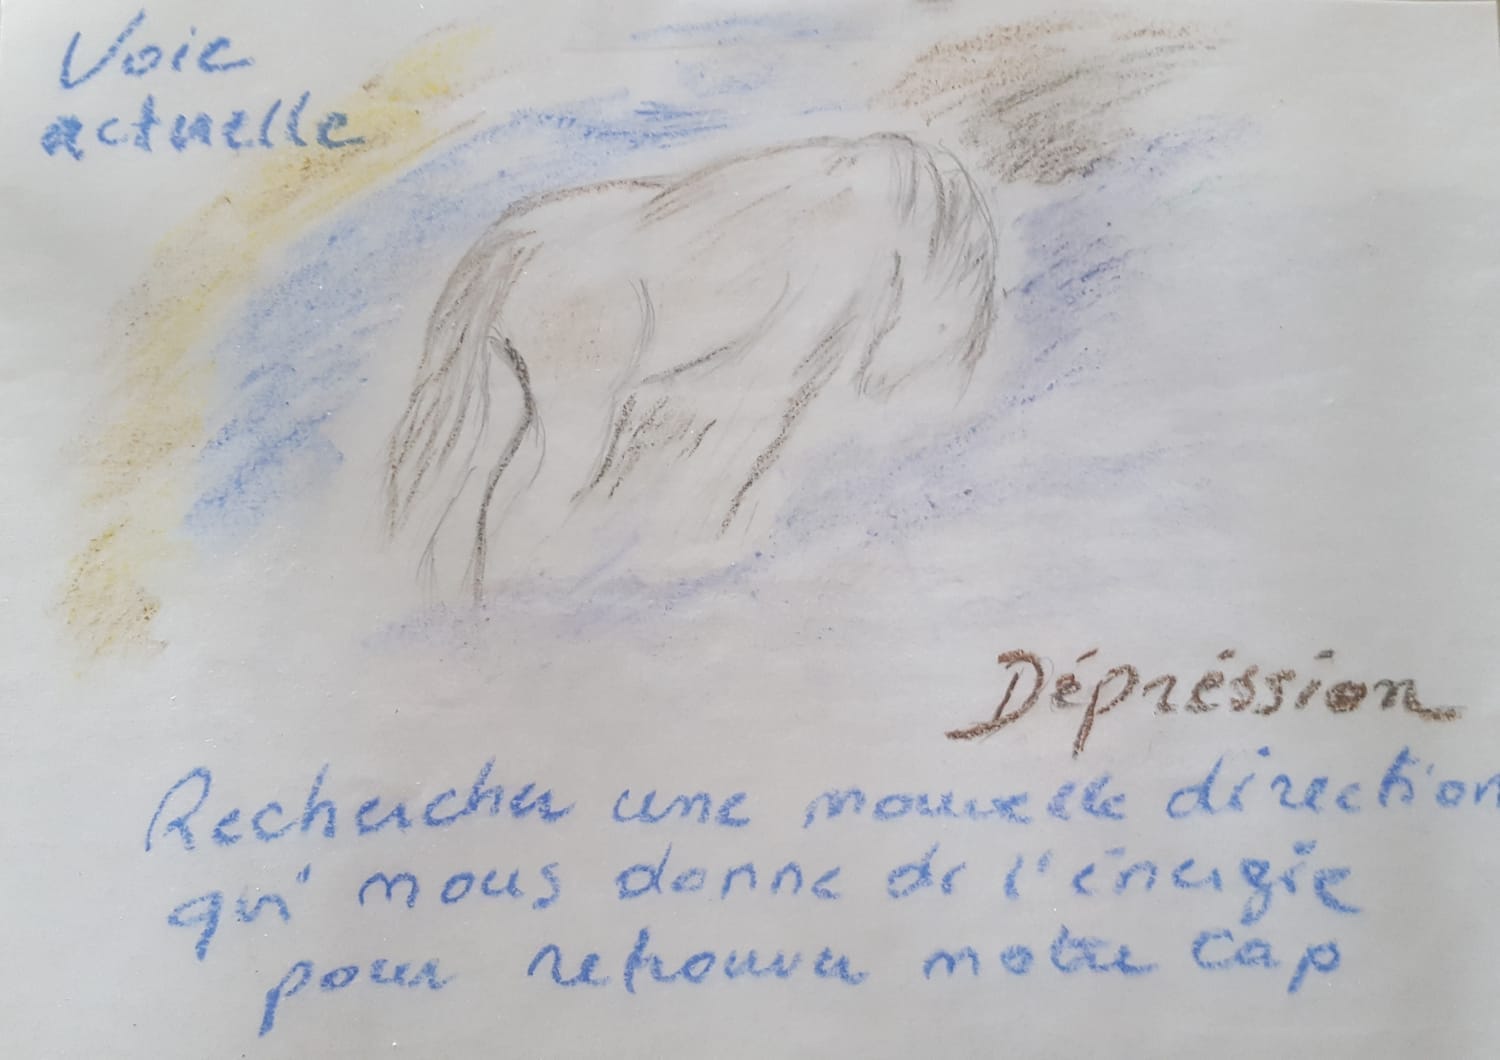 Voie
actuelle
Dépréssion
Rechercher une nouvelle direction
qui nous donne de l'énergie
pour retrouver notre cap